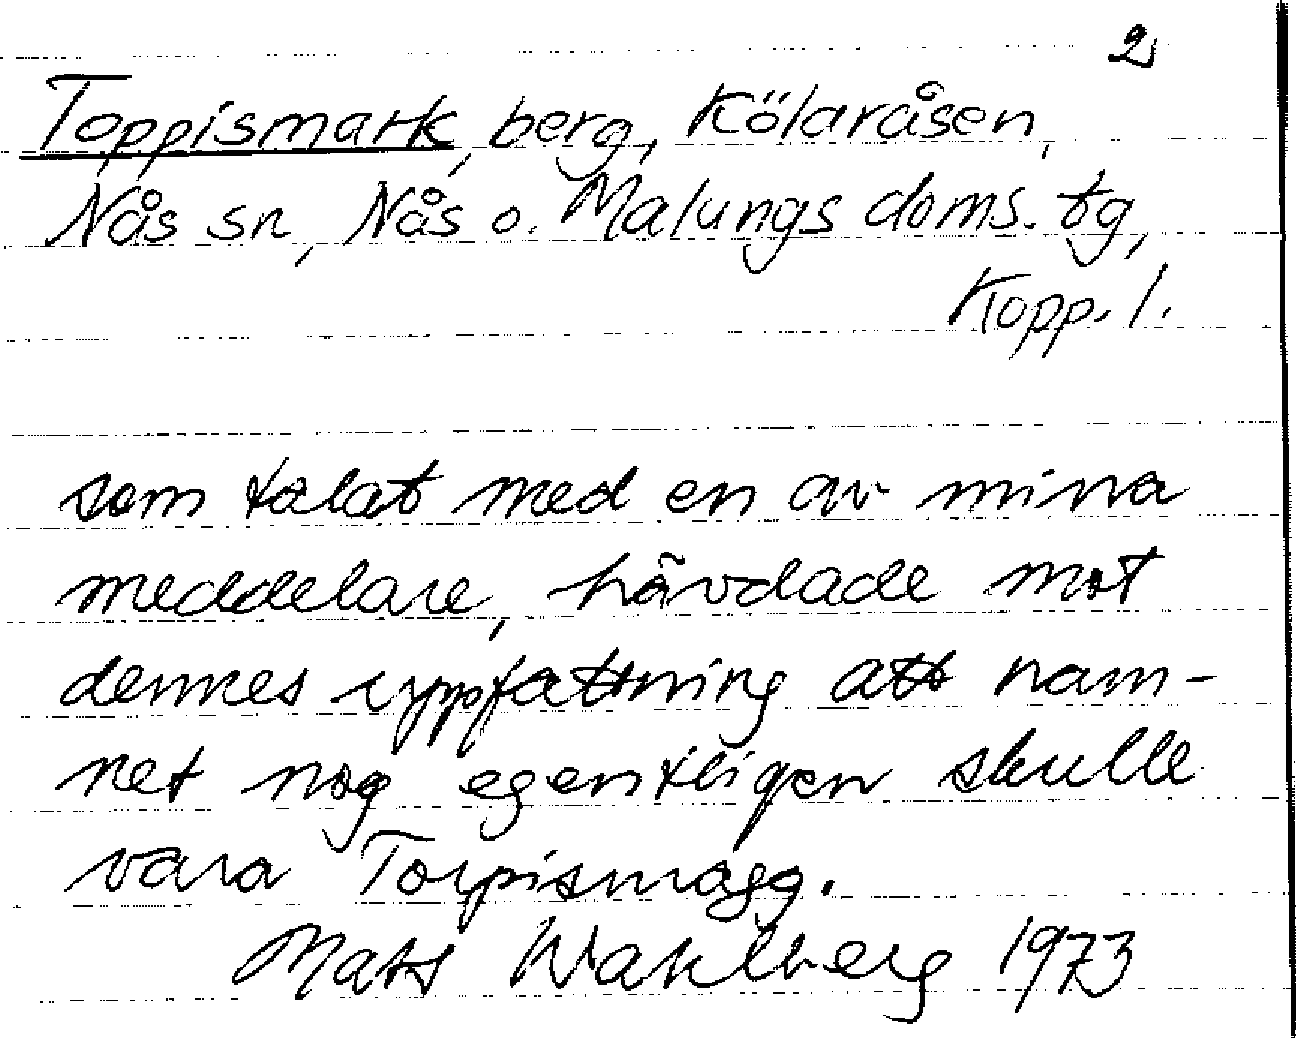 2
Toppismark, berg, Kölaråsen,
Nås sn, Nås o. Malungs doms. tg,
Kopp. l.
som talat med en av mina
meddelare, hävdade mot
dennes uppfattning att nam-
net nog egentligen skulle
vara Torpismagg.
Mats Wahlberg 1973